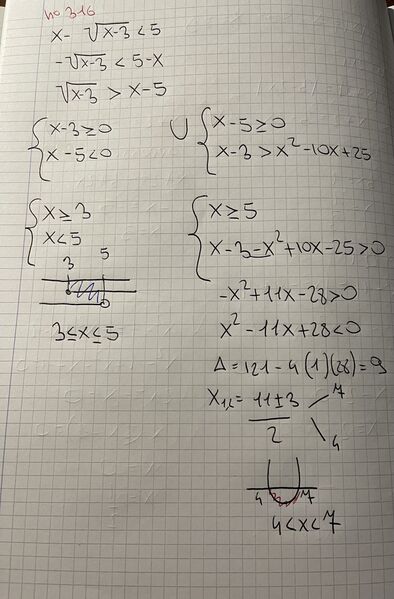 no 316
x - √(x-3) < 5
-√(x-3) < 5-x
√(x-3) > x-5
{ x-3 ≥ 0
x-5 < 0
∪ { x-5 ≥ 0
x-3 > x²-10x+25
{ x ≥ 3
x < 5
3 5
3 ≤ x ≤ 5
{ x ≥ 5
x-3-x²+10x-25 > 0
-x²+11x-28 > 0
x²-11x+28 < 0
Δ = 121-4(1)(28) = 9
x₁,₂ = (11±3)/2 7 4
4 7
4 < x < 7